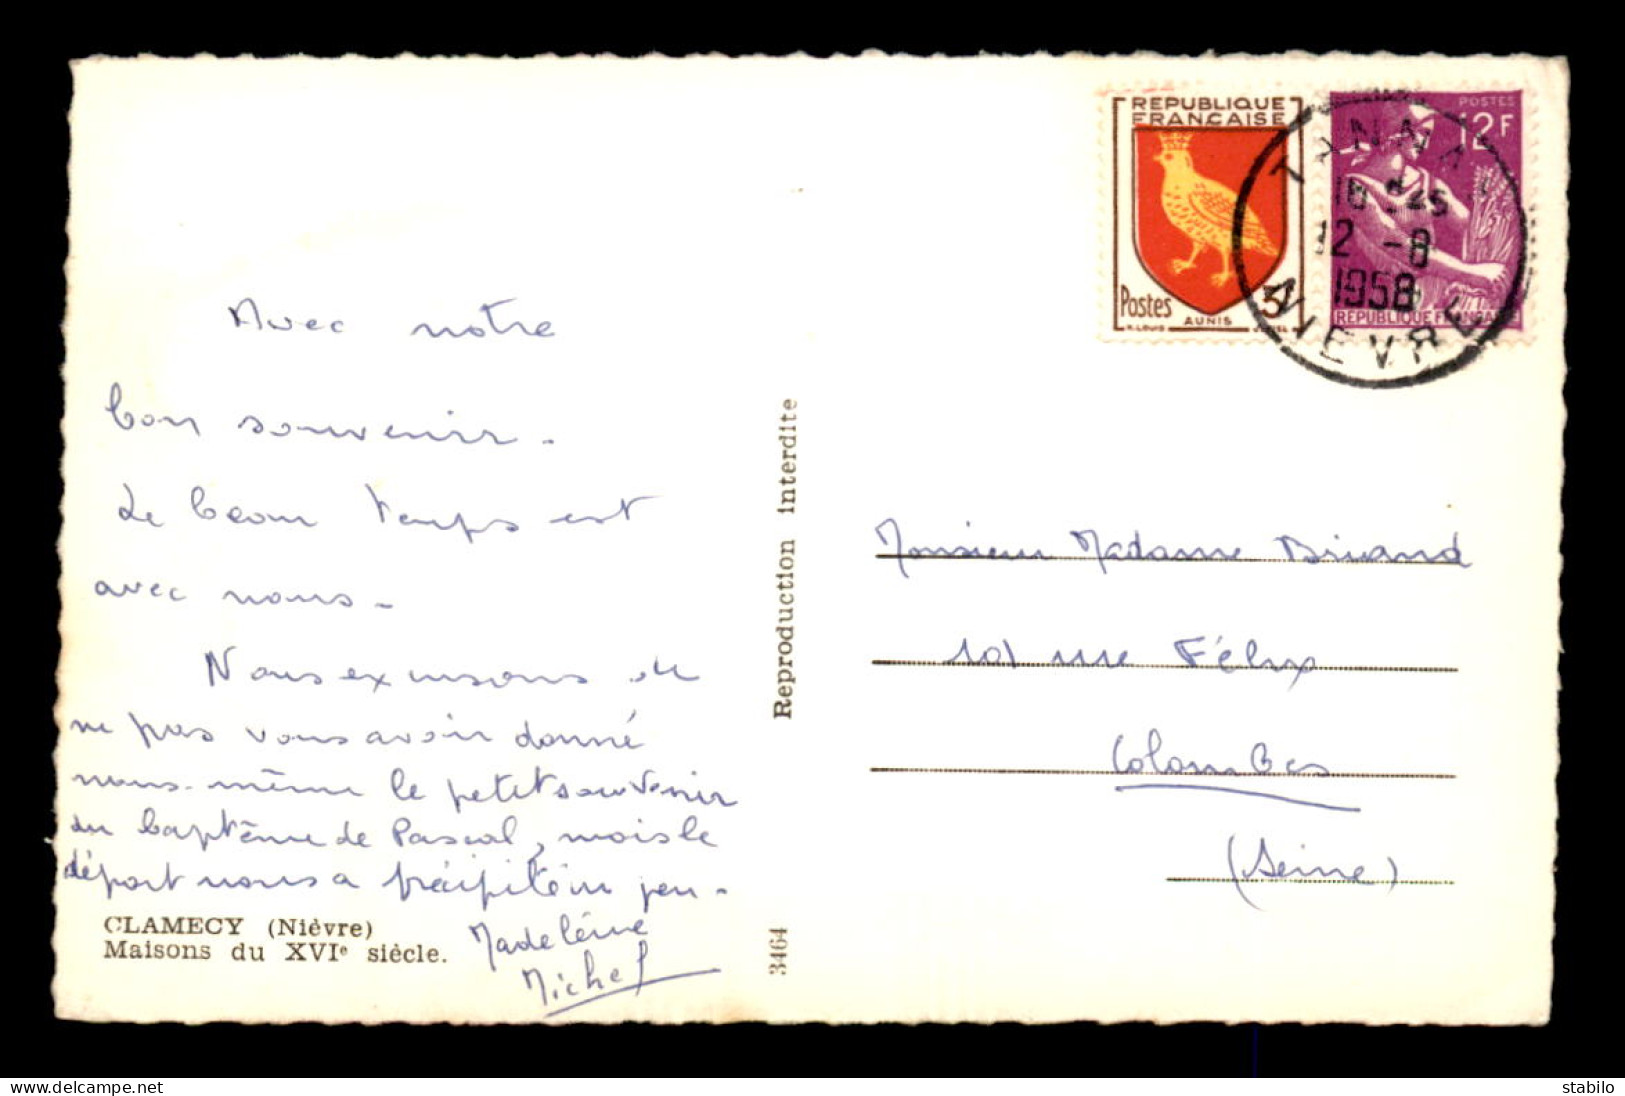 Avec notre
bon souvenir -
Le beau temps est
avec nous -
Nous excusons de
ne pas vous avoir donné
nous-même le petit souvenir
du baptême de Pascal, mais le
départ nous a précipité un peu -
Madeleine
Michel
CLAMECY (Nièvre)
Maisons du XVIe siècle.
Reproduction interdite
3464
REPUBLIQUE
FRANÇAISE
Postes 5
AUNIS
POSTES
12F
REPUBLIQUE FRANÇAISE
TANNAY
18 H45
12 -8
1958
NIEVRE
Monsieur Madame
101 rue Félix
Colombes
(Seine)
delcampe.net
stabilo